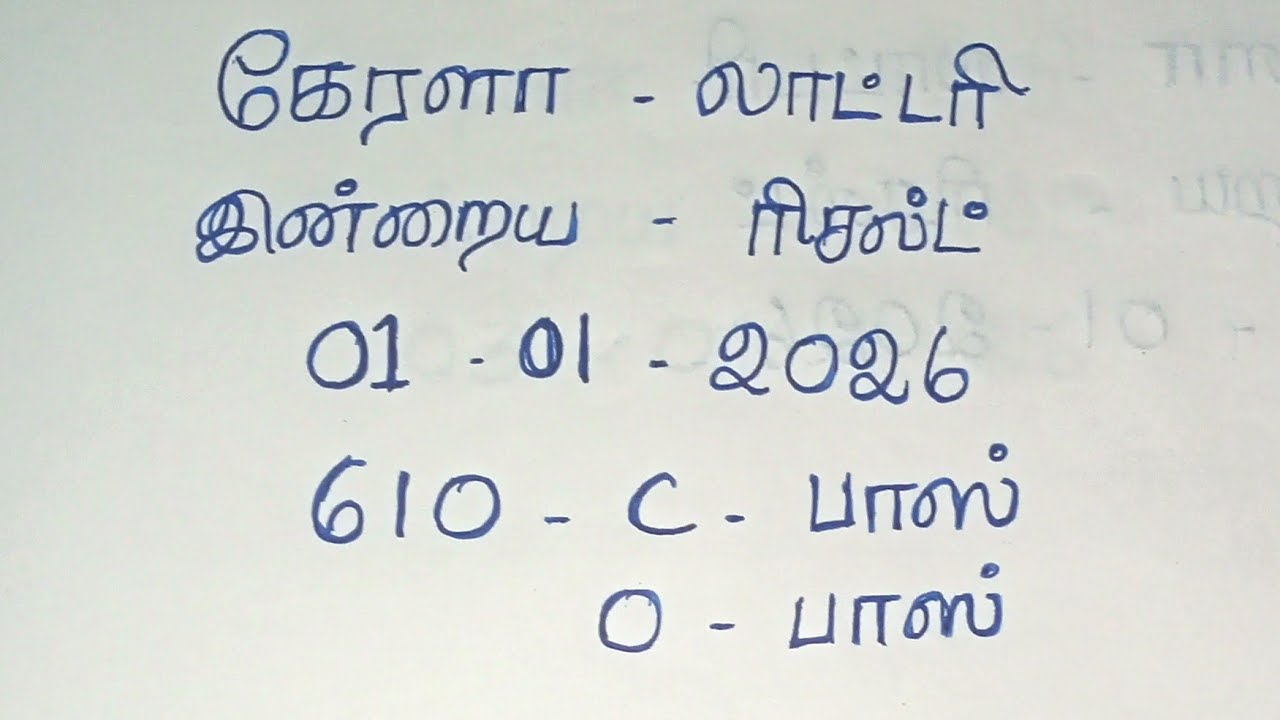 கேரளா - லாட்டரி
இன்றைய - ரிசல்ட்
01 - 01 - 2026
610 - C - பாஸ்
0 - பாஸ்